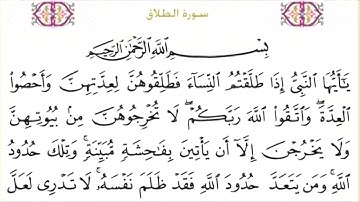 سورة الطلاق
بِسْمِ ٱللَّهِ ٱلرَّحْمَٰنِ ٱلرَّحِيمِ
يَٰٓأَيُّهَا ٱلنَّبِىُّ إِذَا طَلَّقْتُمُ ٱلنِّسَآءَ فَطَلِّقُوهُنَّ لِعِدَّتِهِنَّ وَأَحْصُوا۟
ٱلْعِدَّةَ ۖ وَٱتَّقُوا۟ ٱللَّهَ رَبَّكُمْ ۖ لَا تُخْرِجُوهُنَّ مِنۢ بُيُوتِهِنَّ
وَلَا يَخْرُجْنَ إِلَّآ أَن يَأْتِينَ بِفَٰحِشَةٍ مُّبَيِّنَةٍ ۚ وَتِلْكَ حُدُودُ
ٱللَّهِ ۚ وَمَن يَتَعَدَّ حُدُودَ ٱللَّهِ فَقَدْ ظَلَمَ نَفْسَهُۥ ۚ لَا تَدْرِى لَعَلَّ